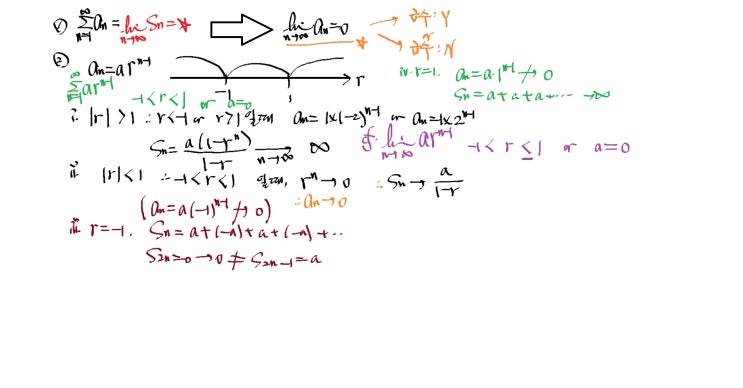 ① ∑_{n=1}^{∞} aₙ = lim_{n→∞} Sₙ = ★ ⇒ lim_{n→∞} aₙ = 0 ★ → 수: Y
or 수: N
② aₙ = ar^{n-1} -1 1 r
∑_{n=1}^{∞} ar^{n-1} -1<r<1 or a=0
iv. r=1. aₙ = a·1^{n-1} ↛ 0
Sₙ = a+a+a+⋯ → ∞
i. |r|>1 ∴ r<-1 or r>1 일때 aₙ = 1×(-2)^{n-1} or aₙ = 1×2^{n-1}
Sₙ = a(1-rⁿ)/(1-r) →_{n→∞} ∞
cf. lim_{n→∞} ar^{n-1} -1<r≤1 or a=0
ii |r|<1 ∴ -1<r<1 일때, rⁿ→0 ∴ Sₙ → a/(1-r)
∴ aₙ→0
(aₙ = a(-1)^{n-1} ↛ 0)
iii. r=-1. Sₙ = a+(-a)+a+(-a)+⋯
S₂ₙ=0 → 0 ≠ S₂ₙ₋₁ = a